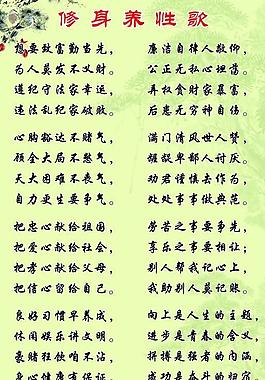 修身养性歌
想要致富勤当先，
为人莫发不义财。
遵纪守法家幸运，
违法乱纪家破败。
心胸豁达不赌气，
顾全大局不怒气，
天大困难不丧气，
自力更生要争气。
把忠心献给祖国，
把爱心献给社会，
把孝心献给父母，
把信心留给自己。
良好习惯早养成，
休闲娱乐讲文明。
豪赌狂饮咱不沾，
身心健康有保证
廉洁自律人敬仰，
公正无私心坦荡。
弄权贪财家暴富，
后患无穷神自伤。
满门清风世人赞，
龌龊卑鄙人讨厌。
劝君谨慎去作为，
处处事事做典范。
劳苦之事要争先，
享乐之事要相让；
别人帮我记心上，
我助别人莫记账。
向上是人生的主题，
进步是青春的含义，
拼搏是强者的内涵，
成功是奋斗的归宿